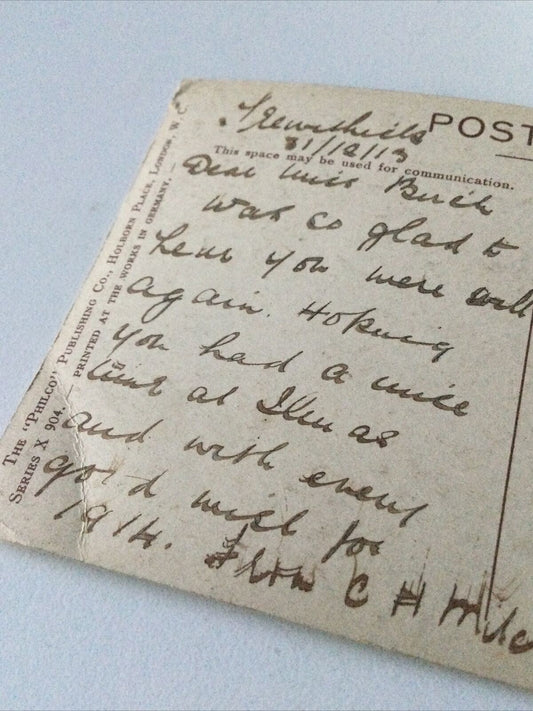 POST
31/12/13
This space may be used for communication.
Dear Miss Birch
was so glad to
hear you were well
again. Hoping
you had a nice
time at Xmas
and with every
good wish for
1914.
From C H
THE "PHILCO" PUBLISHING CO., HOLBORN PLACE, LONDON, W. C.
SERIES X 904. — PRINTED AT THE WORKS IN GERMANY.